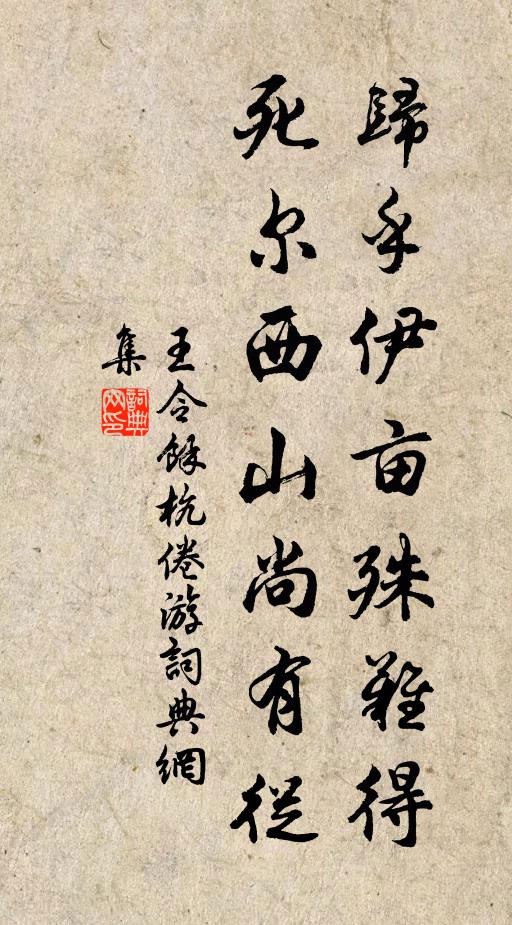 歸乎伊亩殊難得
死尔西山尚有從
王令餘杭倦游詞典網
集
詞典網印